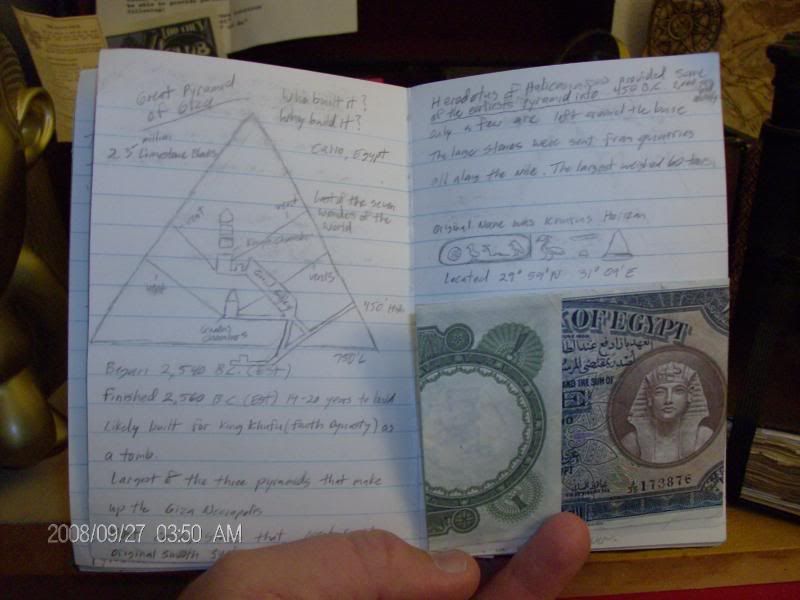 Great Pyramid
of Giza
Who built it?
Why build it?
million
2.5 Limestone Blocks
Cairo, Egypt
Last of the seven
wonders of the
world
vent
vent
vent
vents
Grand Gallery
450' High
750' L
Began 2,540 B.C. (EST)
Finished 2,560 B.C. (EST) 14-20 years to build
Likely built for King Khufu (fourth dynasty) as
a tomb.
Largest of the three pyramids that make
up the Giza Necropolis
that
original smooth
Herodotus of provided some
of the earliest pyramid info 450 B.C.
only a few are left around the base
The larger stones were sent from quarries
all along the Nile. The largest weighed 60 tons
Original Name was Khufus Horizon
Located 29° 59'N 31° 09'E
K OF EGYPT
AND THE SUM OF
173876
1
2008/09/27 03:50 AM